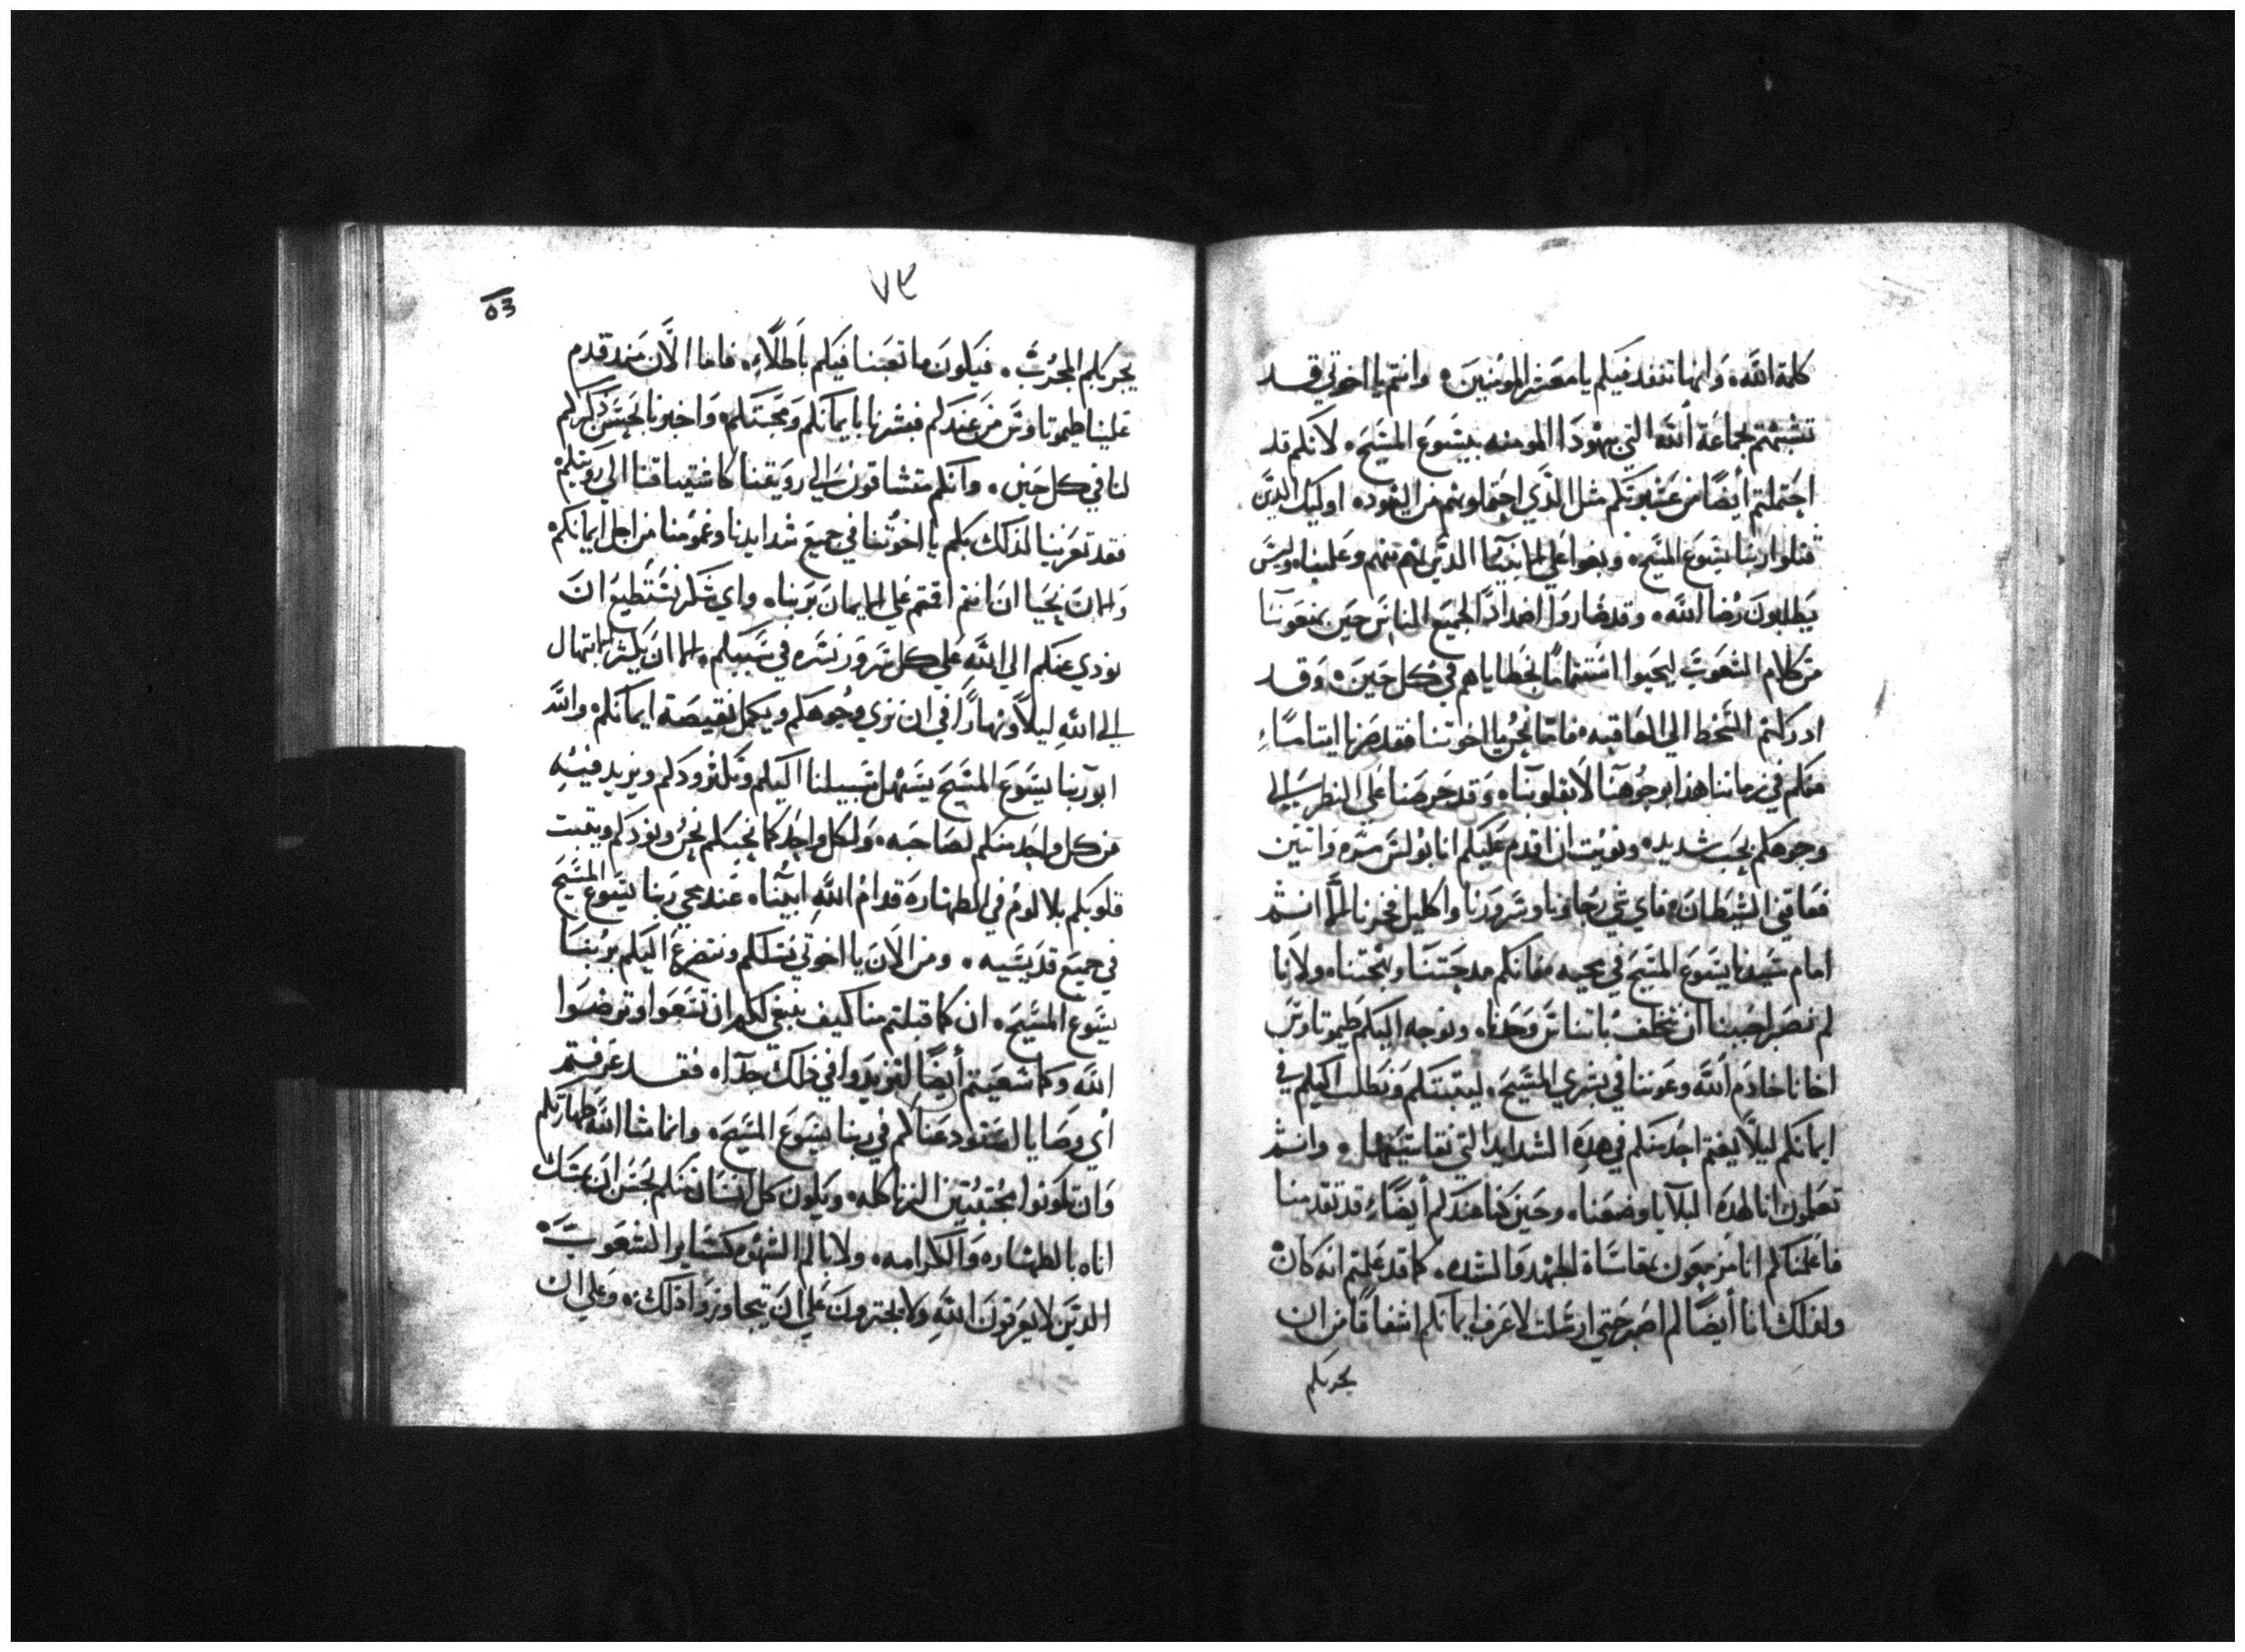 كلمة الله وانها تنفد فيكم يا معشر المومنين ٥ وانتم يا اخوتي قد
تشبهتم بجماعة الله التي بيهودا المومنه بيسوع المسيح ٥ لانكم قد
احتملتم أيضًا من عشيرتكم مثل الذي احتملوه هم من اليهود ٥ اوليك الذين
قتلوا ربنا يسوع المسيح ٥ وبغوا علي الانبيآ الذين هم منهم وعلينا ٥ وليس
يطلبون رضا الله ٥ وقد صاروا اضدادًا لجميع الناس حين يمنعونا
من كلام الشعوب ليحيوا استتمامًا بخطاياهم في كل حين ٥ وقد
ادركتهم السخط الي العاقبه ٥ فامّا نحن يا اخوتنا فقد صرنا ايتامًا
منكم في زماننا هذا بوجوهنا لا بقلوبنا ٥ وقد حرصنا علي النظر الي
وجوهكم بحب شديد ٥ ونويت ان اقدم عليكم انا بولس مره واتنين
فعاقني الشيطان ٥ فاي شي رجاونا وسرورنا واكليل فخرنا الا انتم
امام سيدنا يسوع المسيح في مجيه ٥ فانكم مدحتنا وبهجتنا ٥ ولانا
لم نصبر احببنا ان نتخلف باتناس وحدنا ٥ ونوجه اليكم طيموتاوس
اخانا خادم الله وعوننا في بشري المسيح ٥ ليتبتكم ويطلب اليكم في
ايمانكم ليلا يغتم احد منكم في هده الشدايد التي نقاسيها ٥ وانتم
تعلمون انا لهده البلايا وضعنا ٥ وحين كنا عندكم أيضًا قد تقدمنا
فاعلمناكم انا مزمعون بمقاساة الجهد والشده ٥ كما قد علمتم انه كان
ولذلك انا أيضًا لم اصبر حتي ارسلت لاعرف ايمانكم اشفاقًا من ان
يجربكم
٧٤
53
يجربكم المجرب ٥ فيكون ما تعبنا فيكم باطلًا ٥ فاما الان مند قدم
علينا طيموتاوس من عندكم فبشرنا بايمانكم ومحبتكم ٥ واخبرنا بحسن ذكركم
لنا في كل حين ٥ وانكم متشاقون الي رويتنا كاشتياقنا الي رويتكم ٥
فقد تعزينا لذلك بكم يا اخوتنا في جميع شدايدنا وغمومنا من اجل ايمانكم ٥
والان نحيا ان انتم اقمتم علي الايمان بربنا ٥ واي شكر نستطيع ان
نودي عنكم الي الله علي كل سرور نسره في سببكم ٥ الا ان نكثر الابتهال
الي الله ليلاً ونهارًا في ان نري وجوهكم ويكمل نقيصة ايمانكم ٥ والله
ابونا ربنا يسوع المسيح يسهل سبيلنا اليكم ويكثر ودكم ويزيد فيه
من كل واحد منكم لصاحبه ٥ ولكل واحد كما نحبكم نحن ونودكم ويتبت
قلوبكم بلا لوم في الطهاره قدام الله ابينا ٥ عند مجي ربنا يسوع المسيح
في جميع قديسيه ٥ ومن الان يا اخوتي نسلكم ونتضرع اليكم بربنا
يسوع المسيح ٥ ان كما قبلتم منا كيف ينبغي لكم ان تسعوا وترضوا
الله وكما سعيتم أيضًا لتزيدوا في ذلك جدًا ٥ فقد عرفتم
أي وصايا استودعناكم في ربنا يسوع المسيح ٥ وانما شا الله طهارتكم
وان تكونوا مجتنبين الزنا كله ٥ ويكون كل انسان منكم يحسن ان يمسك
اناه بالطهاره والكرامه ٥ ولا بالم الشهوه كساير الشعوب ٥
الدين لا يعرفون الله ولا يجترون علي ان يتجاوزوا ذلك ٥ وعلي ان